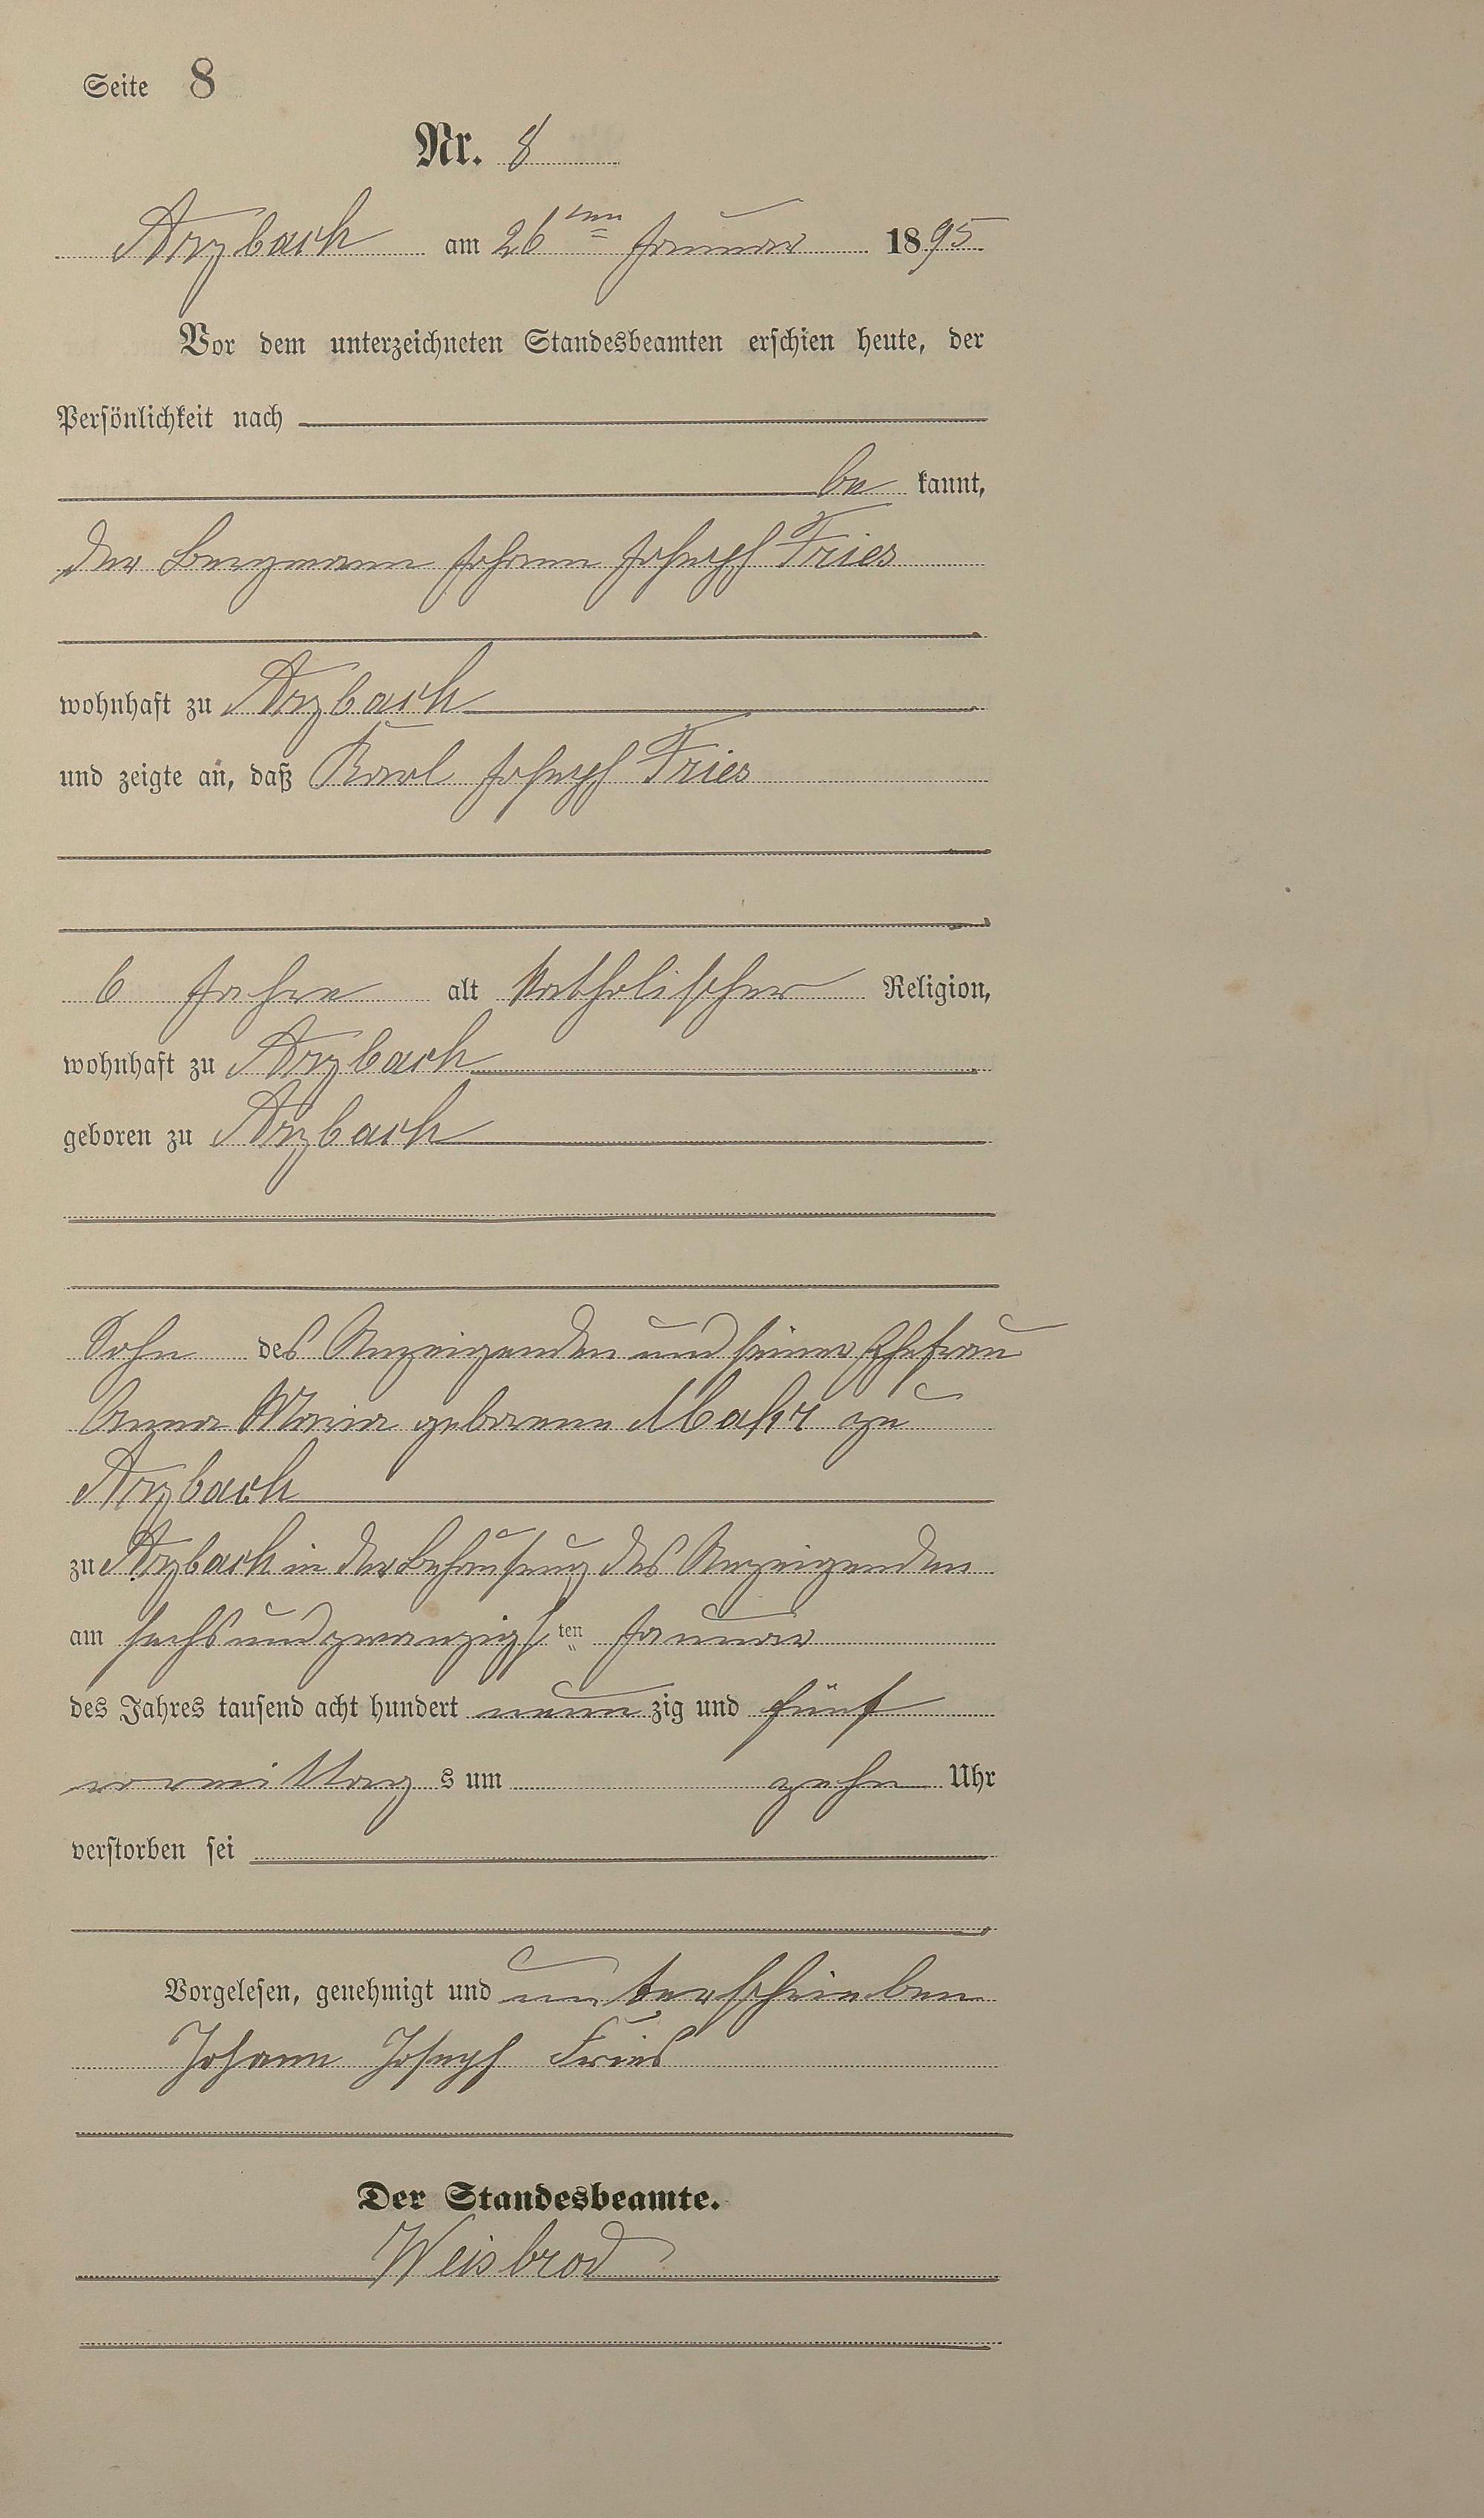 Seite 8
Nr. 8
Arzbach am 26ten Januar 1895
Vor dem unterzeichneten Standesbeamten erschien heute, der
Persönlichkeit nach
be kannt,
der Bergmann Johann Joseph Fries
wohnhaft zu Arzbach
und zeigte an, daß Karl Joseph Fries
6 Jahre alt katholischer Religion,
wohnhaft zu Arzbach
geboren zu Arzbach
Sohn des Anzeigenden und seiner Ehefrau
Anna Maria geborene
zu
Arzbach
zu Arzbach in der Behausung des Anzeigenden
am sechsundzwanzigsten Januar
des Jahres tausend acht hundert neun zig und fünf
vormittag s um zehn Uhr
verstorben sei
Vorgelesen, genehmigt und unterschrieben
Johann Joseph Fries
Der Standesbeamte.
Weisbrod